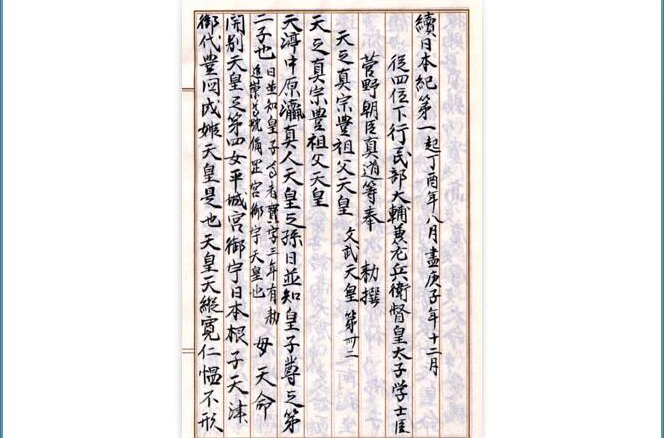 續日本紀第一 起丁酉年八月盡庚子年十二月
從四位下行民部大輔兼左兵衛督皇太子学士臣
菅野朝臣真道等奉 勅撰
天之真宗豊祖父天皇 文武天皇 第卌二
天之真宗豊祖父天皇
天渟中原瀛真人天皇之孫日並知皇子尊之第
二子也 日並知皇子尊者寶字三年有勅
追崇尊號稱罡宮御宇天皇也 母天命
開別天皇之第四女平城宮御宇日本根子天津
御代豊国成姫天皇是也天皇天縱寛仁慍不形